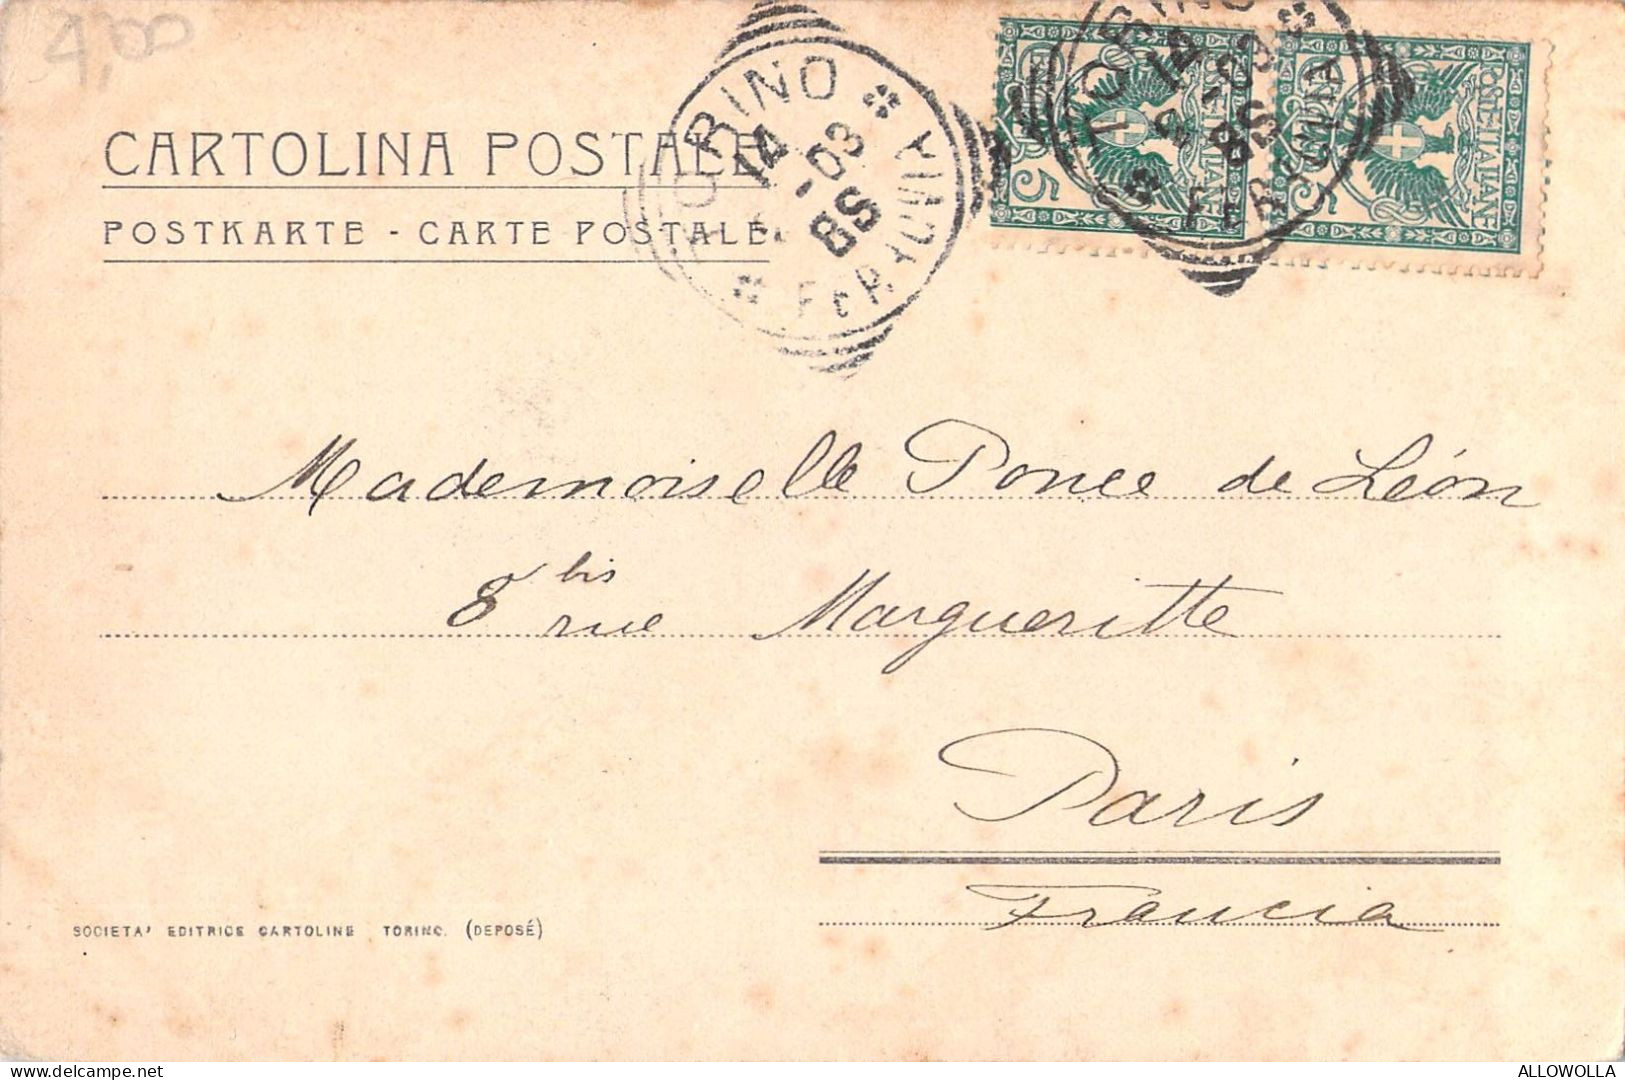 4,00
CARTOLINA POSTALE
POSTKARTE - CARTE POSTALE
TORINO
14
03
8S
FERROVIA
POSTE ITALIANE
5
TORINO
14
03
8S
FERROVIA
POSTE ITALIANE
5
Mademoiselle Ponce de Léon
8 bis rue Margueritte
Paris
Francia
SOCIETA' EDITRICE CARTOLINE TORINO. (DEPOSÉ)
delcampe.net
ALLOWOLLA